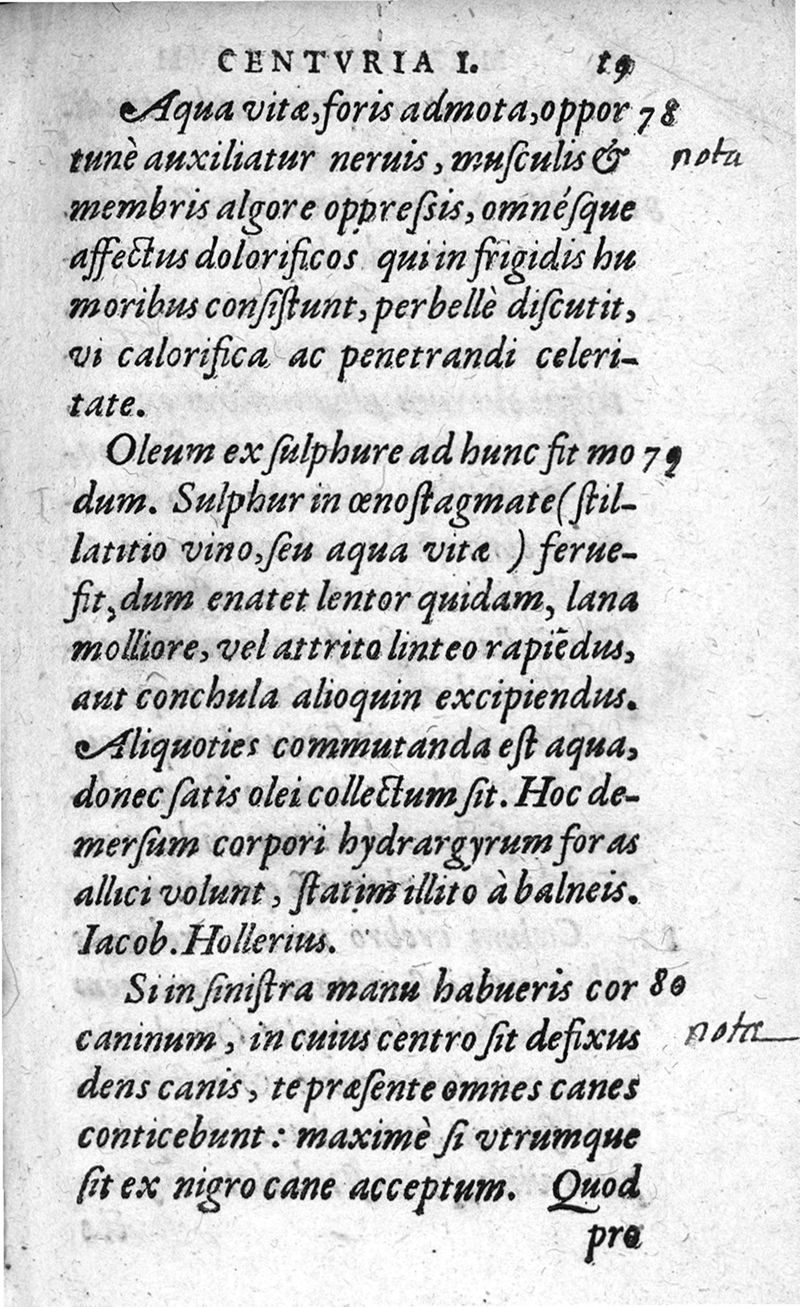 CENTVRIA I. 19
Aqua vitæ, foris admota, oppor 78
tunè auxiliatur neruis, muſculis & nota
membris algore oppreſsis, omnéſque
affectus dolorificos qui in frigidis hu
moribus conſiſtunt, perbellè diſcutit,
vi calorifica ac penetrandi celeri-
tate.
Oleum ex ſulphure ad hunc fit mo 79
dum. Sulphur in œnoſtagmate (ſtil-
latitio vino, ſeu aqua vitæ ) ferue-
fit, dum enatet lentor quidam, lana
molliore, vel attrito linteo rapiẽdus,
aut conchula alioquin excipiendus.
Aliquoties commutanda eſt aqua,
donec ſatis olei collectum ſit. Hoc de-
merſum corpori hydrargyrum foras
allici volunt, ſtatim illito à balneis.
Iacob. Hollerius.
Si in ſiniſtra manu habueris cor 80
caninum, in cuius centro ſit defixus nota
dens canis, te præſente omnes canes
conticebunt: maximè ſi vtrumque
ſit ex nigro cane acceptum. Quod
pro